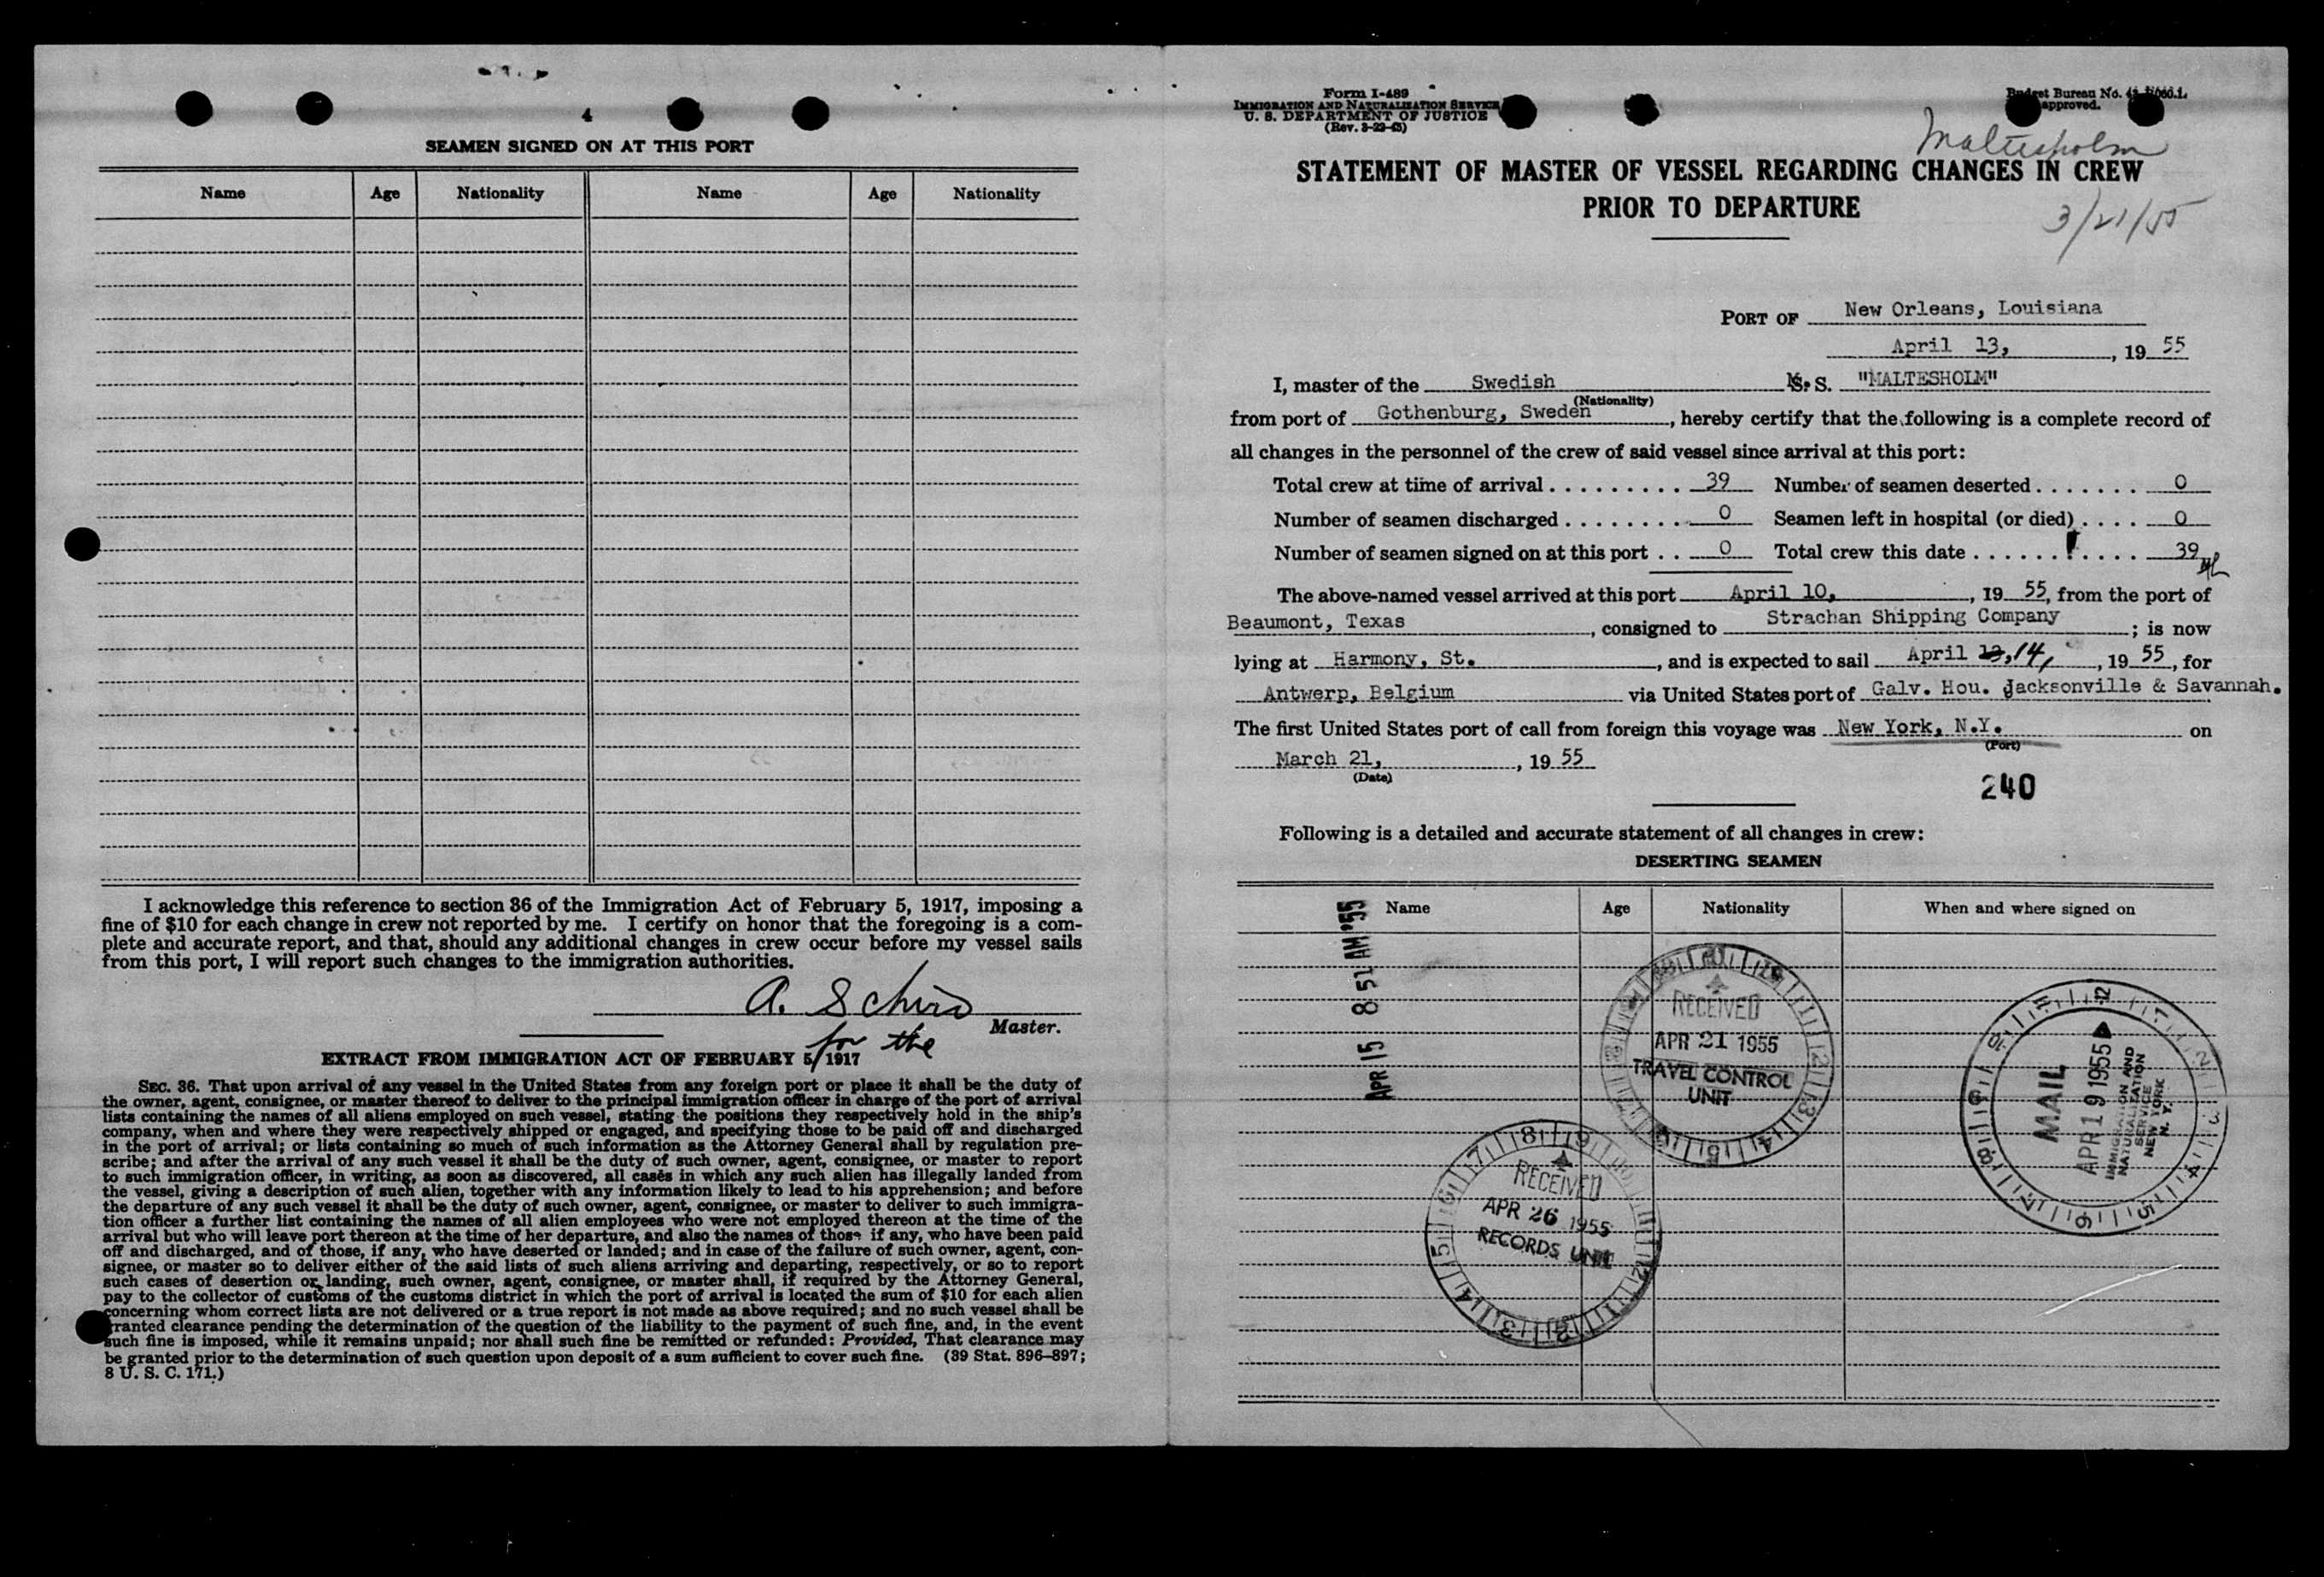 4
SEAMEN SIGNED ON AT THIS PORT
Name Age Nationality Name Age Nationality
I acknowledge this reference to section 36 of the Immigration Act of February 5, 1917, imposing a
fine of $10 for each change in crew not reported by me. I certify on honor that the foregoing is a com-
plete and accurate report, and that, should any additional changes in crew occur before my vessel sails
from this port, I will report such changes to the immigration authorities.
A. Schiro
for the Master.
EXTRACT FROM IMMIGRATION ACT OF FEBRUARY 5, 1917
SEC. 36. That upon arrival of any vessel in the United States from any foreign port or place it shall be the duty of
the owner, agent, consignee, or master thereof to deliver to the principal immigration officer in charge of the port of arrival
lists containing the names of all aliens employed on such vessel, stating the positions they respectively hold in the ship's
company, when and where they were respectively shipped or engaged, and specifying those to be paid off and discharged
in the port of arrival; or lists containing so much of such information as the Attorney General shall by regulation pre-
scribe; and after the arrival of any such vessel it shall be the duty of such owner, agent, consignee, or master to report
to such immigration officer, in writing, as soon as discovered, all cases in which any such alien has illegally landed from
the vessel, giving a description of such alien, together with any information likely to lead to his apprehension; and before
the departure of any such vessel it shall be the duty of such owner, agent, consignee, or master to deliver to such immigra-
tion officer a further list containing the names of all alien employees who were not employed thereon at the time of the
arrival but who will leave port thereon at the time of her departure, and also the names of those if any, who have been paid
off and discharged, and of those, if any, who have deserted or landed; and in case of the failure of such owner, agent, con-
signee, or master so to deliver either of the said lists of such aliens arriving and departing, respectively, or so to report
such cases of desertion or landing, such owner, agent, consignee, or master shall, if required by the Attorney General,
pay to the collector of customs of the customs district in which the port of arrival is located the sum of $10 for each alien
concerning whom correct lists are not delivered or a true report is not made as above required; and no such vessel shall be
granted clearance pending the determination of the question of the liability to the payment of such fine, and, in the event
such fine is imposed, while it remains unpaid; nor shall such fine be remitted or refunded: Provided, That clearance may
be granted prior to the determination of such question upon deposit of a sum sufficient to cover such fine. (39 Stat. 896-897;
8 U. S. C. 171.)
Form I-489
IMMIGRATION AND NATURALIZATION SERVICE
U. S. DEPARTMENT OF JUSTICE
(Rev. 3-22-43)
Budget Bureau No.
approved.
Maltesholm
STATEMENT OF MASTER OF VESSEL REGARDING CHANGES IN CREW
PRIOR TO DEPARTURE
3/21/55
PORT OF New Orleans, Louisiana
April 13, , 19 55
I, master of the Swedish S. S. "MALTESHOLM"
(Nationality)
from port of Gothenburg, Sweden , hereby certify that the following is a complete record of
all changes in the personnel of the crew of said vessel since arrival at this port:
Total crew at time of arrival . . . . . . . . . 39 Number of seamen deserted . . . . . . . 0
Number of seamen discharged . . . . . . . . 0 Seamen left in hospital (or died) . . . . 0
Number of seamen signed on at this port . . 0 Total crew this date . . . . . . . . . . 39
The above-named vessel arrived at this port April 10, , 19 55, from the port of
Beaumont, Texas , consigned to Strachan Shipping Company ; is now
lying at Harmony, St. , and is expected to sail April 13, 14, , 19 55, for
Antwerp, Belgium via United States port of Galv. Hou. Jacksonville & Savannah.
The first United States port of call from foreign this voyage was New York, N.Y. on
(Port)
March 21, , 19 55
(Date)
240
Following is a detailed and accurate statement of all changes in crew:
DESERTING SEAMEN
Name Age Nationality When and where signed on
APR 15 8 51 AM '55
RECEIVED
APR 21 1955
TRAVEL CONTROL
UNIT
RECEIVED
APR 26 1955
RECORDS UNIT
MAIL
APR 19 1955
IMMIGRATION AND
NATURALIZATION
SERVICE
NEW YORK
N. Y.